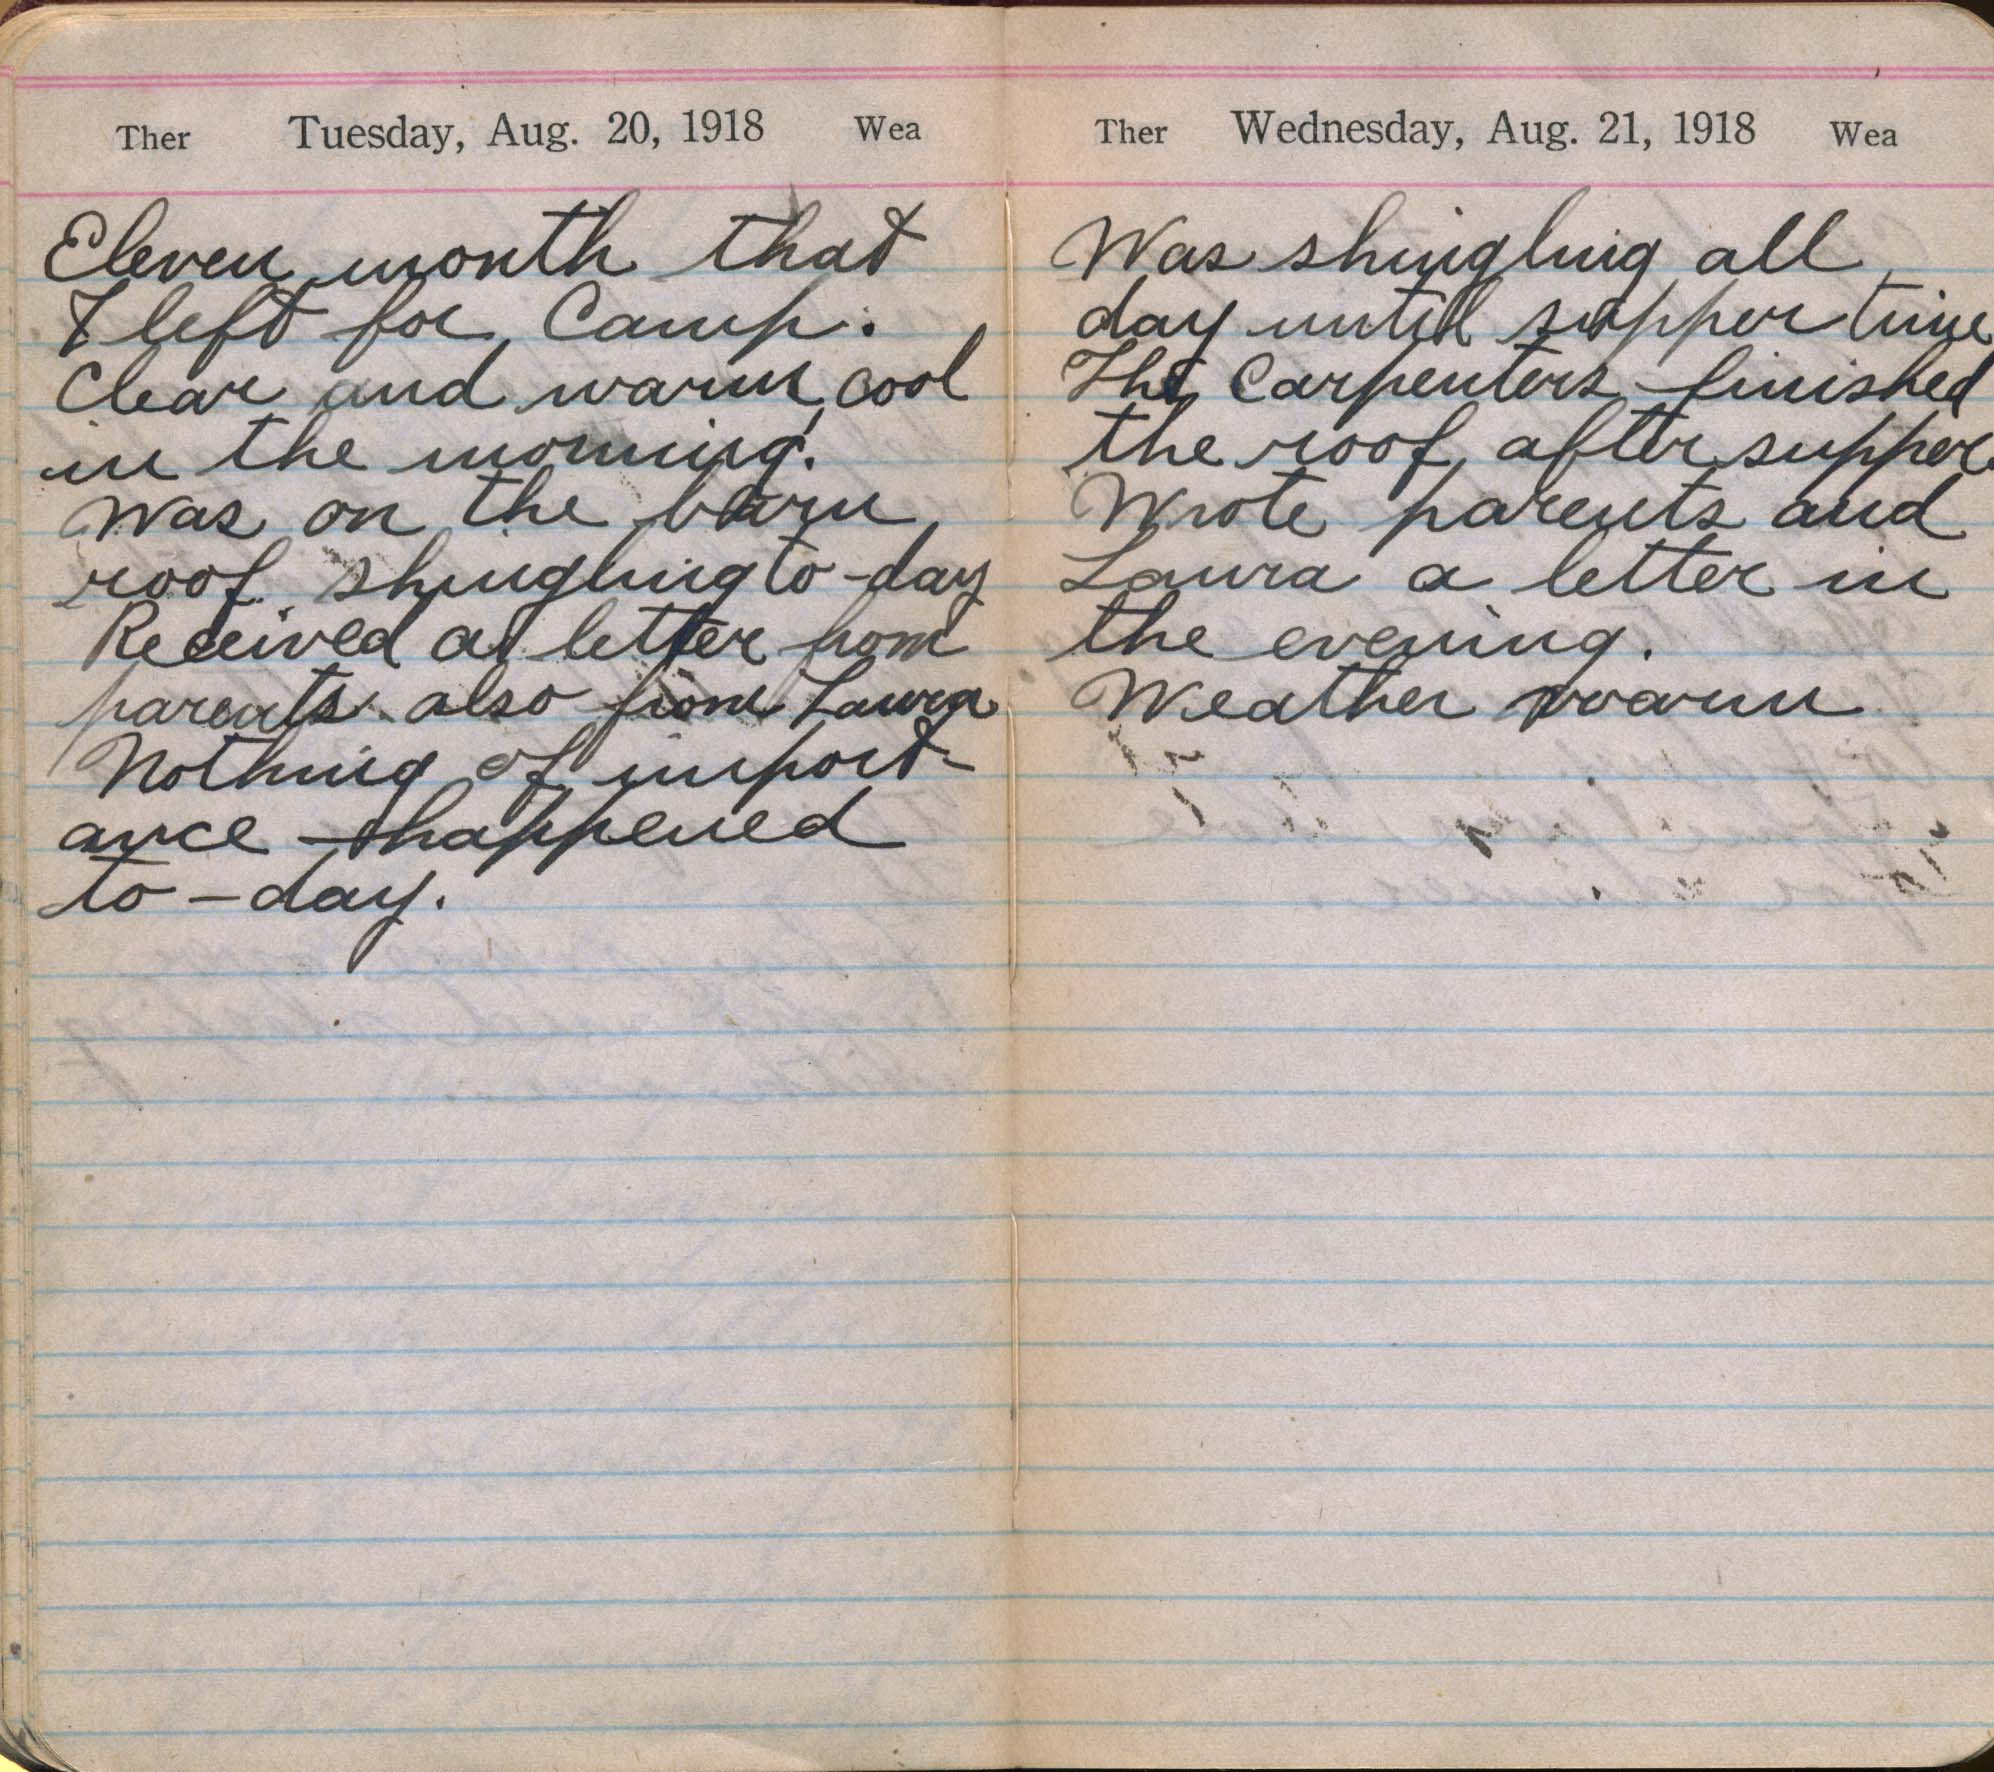 Ther Tuesday, Aug. 20, 1918 Wea
Eleven month that
I left for Camp.
Clear and warm, cool
in the morning.
Was on the barn
roof shingling to-day
Received a letter from
parents also from Laura
Nothing of import-
ance happened
to-day.
Ther Wednesday, Aug. 21, 1918 Wea
Was shingling all
day until supper time
The Carpenters finished
the roof after supper.
Wrote parents and
Laura a letter in
the evening.
Weather warm